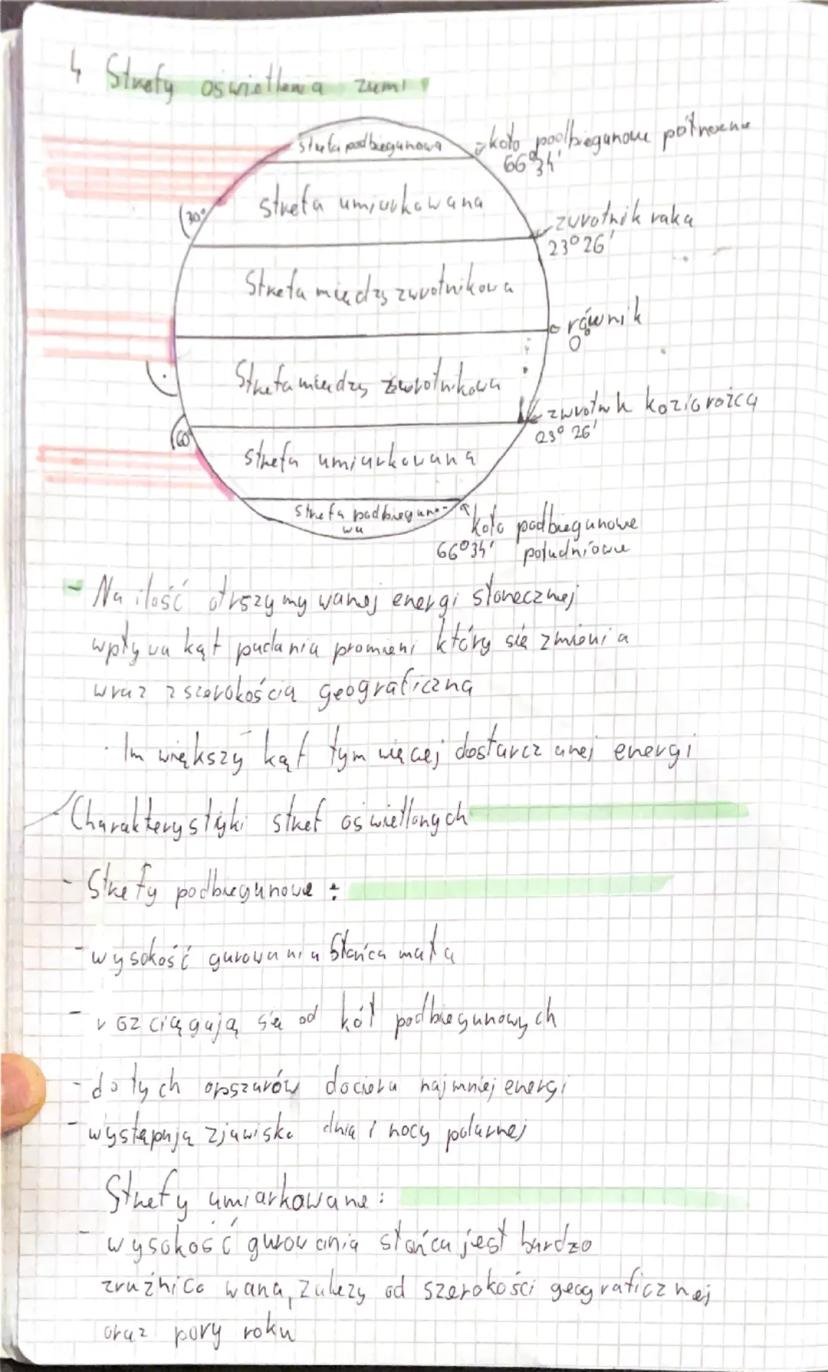 4 Strefy oświetlenia ziemi
strefa podbiegunowa
koło podbiegunowe północne
66°34'
strefa umiarkowana
30°
zwrotnik raka
23°26'
Strefa między zwrotnikowa
równik
0°
Strefa miedzy zwrotnikowa
zwrotnik koziorożca
23°26'
60°
strefa umiarkowana
strefa podbieguno-
wa
koło podbiegunowe
66°34' południowe
- Na ilość otrszymywanej energi słonecznej
wpływa kąt padania promieni który się zmienia
wraz z szerokościa geograficzną
· Im większy kąt tym więcej dostarczanej energi
Charakterystyki stref oświetlonych
- Strefy podbiegunowe :
- wysokość gurowania Słańca mała
- rozciągają się od kół podbiegunowych
- do tych opszarów dociera najmniej energi
- wystąpują zjawiska dnia i nocy polarnej
Strefy umiarkowane:
- wysokość gurowania słańca jest bardzo
zrużnicowana, zależy od szerokości geograficznej
oraz pory roku